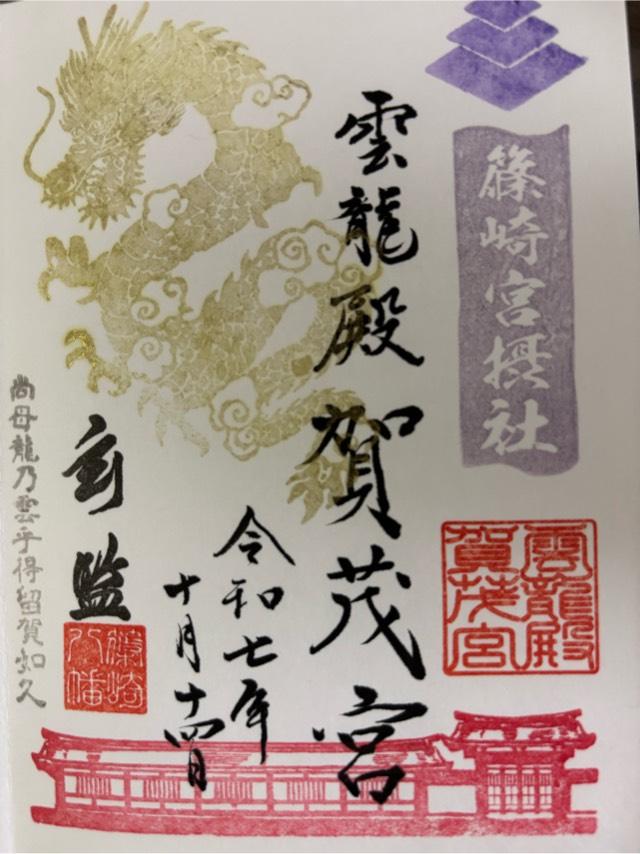 篠崎宮摂社
雲龍殿賀茂宮
雲龍殿
賀茂宮
令和七年
十月十四日
玄監
篠崎
八幡
尚母龍乃雲乎得留賀如久